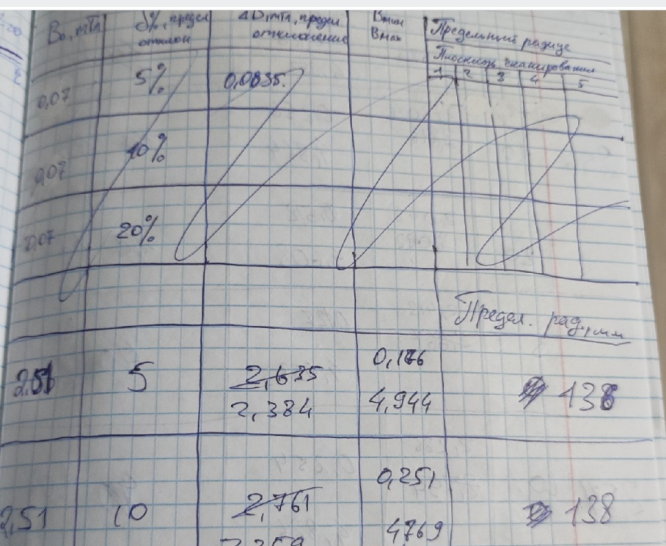 B₀, мТл
δ%, предел
отклон
ΔB, мТл, предел
отклонение
Bмин
Bмах
Предельный радиус
Плоскость сканирования
1 2 3 4 5
0,07 5% 0,0035
0,07 10%
0,07 20%
Предел. рад., мм
2,51 5 2,635 0,126
2,384 4,944 138
2,51 10 2,761 0,251
2,259 4769 138